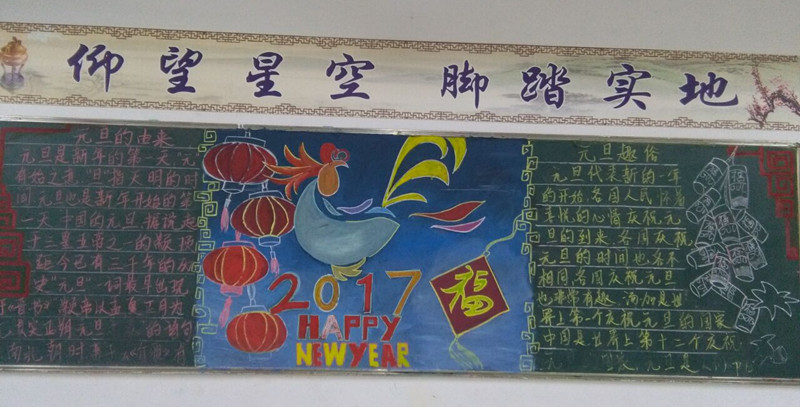 仰望星空 脚踏实地
元旦的由来
元旦是新年的第一天"元"
有始之意，"旦"指天明的时
间 元旦也是新年开始的第
一天 中国的元旦 据说起
于三皇五帝之一的颛顼
距今已有三千年的历
史 "元旦"一词最早出现
元旦
2017
HAPPY
NEW YEAR
福
元旦趣俗
元旦代表新的一年
的开始 各国人民
的心情庆祝元
旦的到来 各国庆祝
元旦的时间也各不
相同 各国庆祝元旦
也非常有趣 汤加是世
界上第一个庆祝元旦的国家
中国是世界上第十二个庆祝
元旦是